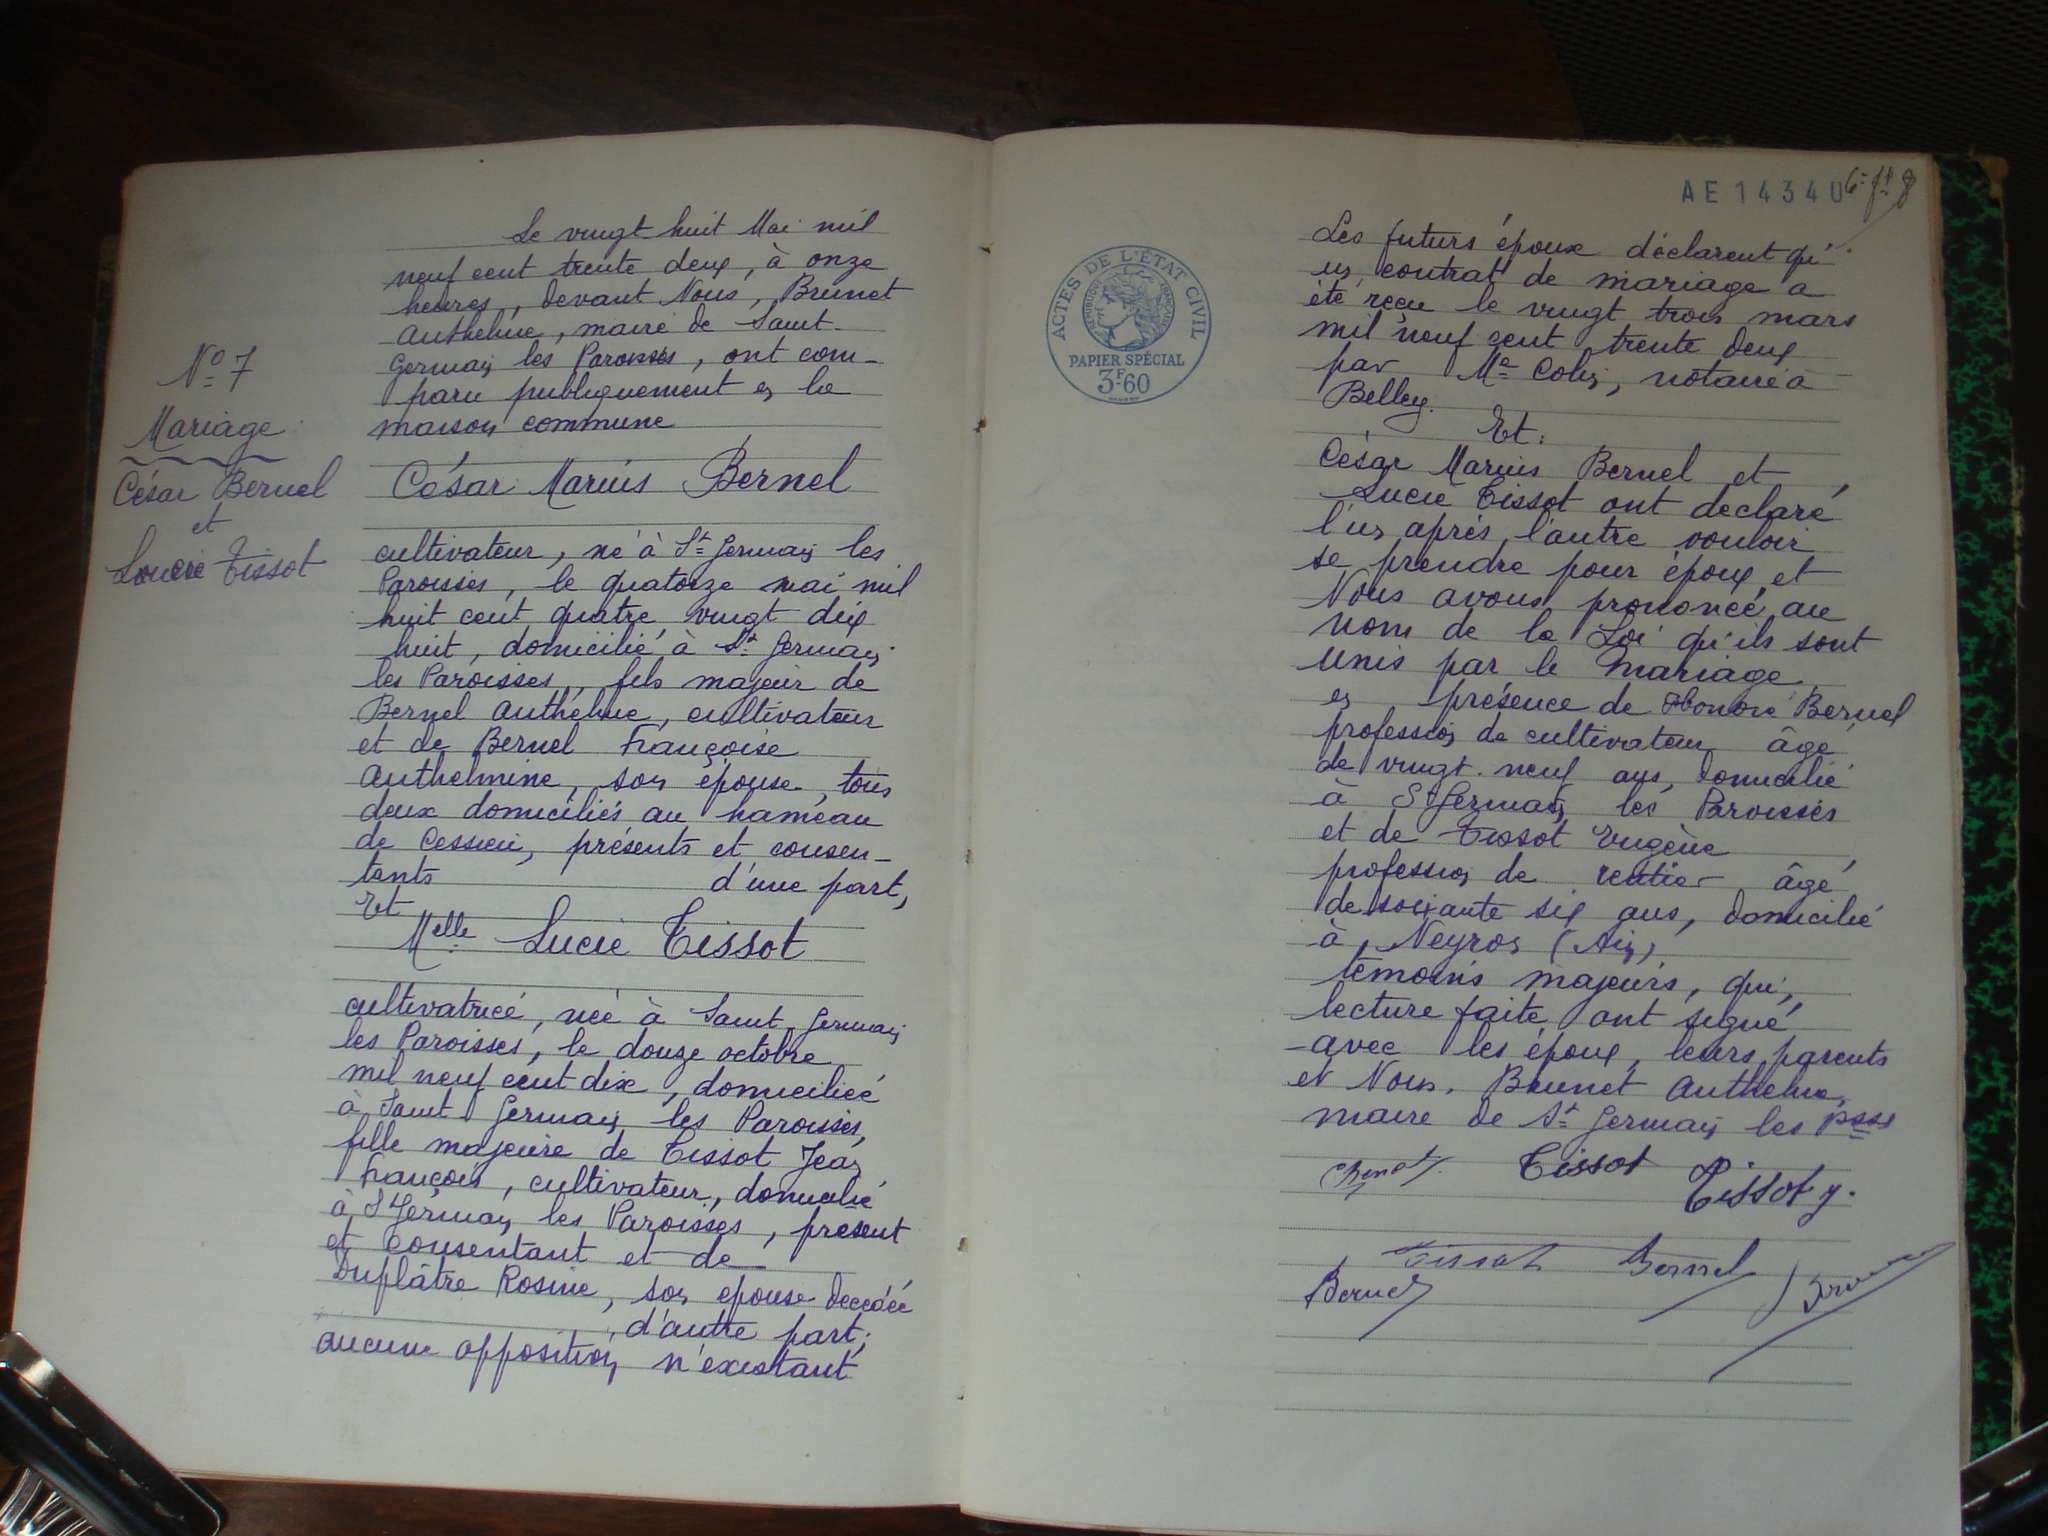 Le vingt huit Mai mil
neuf cent trente deux, à onze
heures, devant Nous, Brunet
Anthelme, maire de Saint-
Germain les Paroisses, ont com-
paru publiquement en la
maison commune
N° 7
Mariage
César Bernel
et
Loucie Tissot
César Marius Bernel
cultivateur, né à St Germain les
Paroisses, le quatorze mai mil
huit cent quatre vingt dix
huit, domicilié à St Germain
les Paroisses, fils majeur de
Bernel Anthelme, cultivateur
et de Bernel Françoise
Anthelmine, son épouse, tous
deux domiciliés au hameau
de Cessieu, présents et consen-
tants d'une part,
Et
Melle Lucie Tissot
cultivatrice, née à Saint Germain
les Paroisses, le douze octobre
mil neuf cent dix, domiciliée
à Saint Germain les Paroisses,
fille majeure de Tissot Jean
François, cultivateur, domicilié
à St Germain les Paroisses, présent
et consentant et de
Duplâtre Rosine, son épouse décédée
, d'autre part;
aucune opposition n'existant
AE 14340
ACTES DE L'ÉTAT CIVIL
RÉPUBLIQUE FRANÇAISE
PAPIER SPÉCIAL
3F60
Les futurs époux déclarent qu'
un contrat de mariage a
été reçu le vingt trois mars
mil neuf cent trente deux
par Me Colin, notaire à
Belley.
Et:
César Marius Bernel et
Lucie Tissot ont déclaré
l'un après l'autre vouloir
se prendre pour époux et
Nous avons prononcé au
nom de la Loi qu'ils sont
unis par le mariage
en présence de Honoré Bernel
profession de cultivateur âgé
de vingt-neuf ans, domicilié
à St Germain les Paroisses
et de Tissot Eugène
profession de rentier âgé
de soixante six ans, domicilié
à Neyron (Ain)
témoins majeurs, qui,
lecture faite ont signé
avec les époux, leurs parents
et Nous, Brunet Anthelme,
maire de St Germain les Psses
Tissot
Tissot y.
Tissot Bernel
Bernel